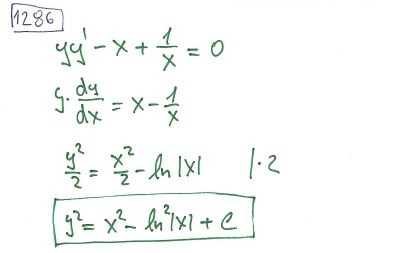 1286
yy' - x + 1/x = 0
y · dy/dx = x - 1/x
y²/2 = x²/2 - ln|x| |·2
y² = x² - ln²|x| + C